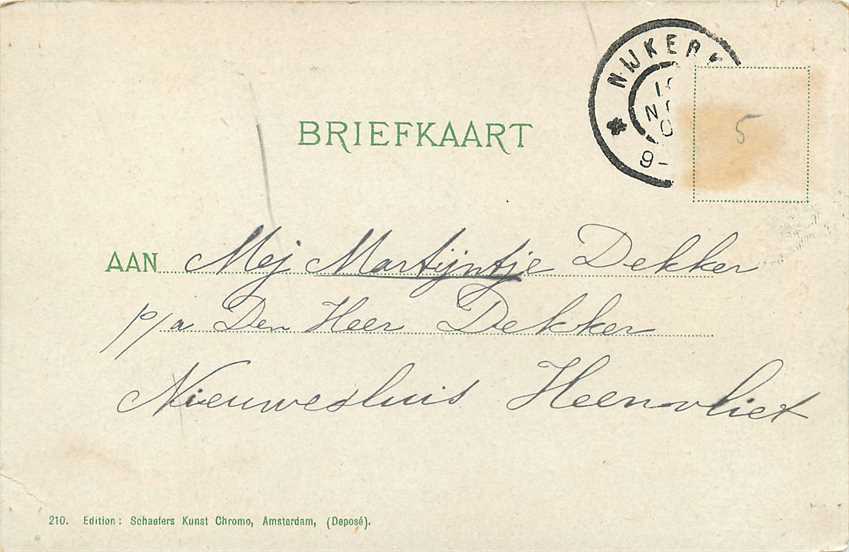 NIJKERK
5
BRIEFKAART
9-
AAN Mej Martijntje Dekker
p/a Den Heer Dekker
Nieuwesluis Heenvliet
210. Edition: Schaefers Kunst Chromo, Amsterdam, (Deposé).